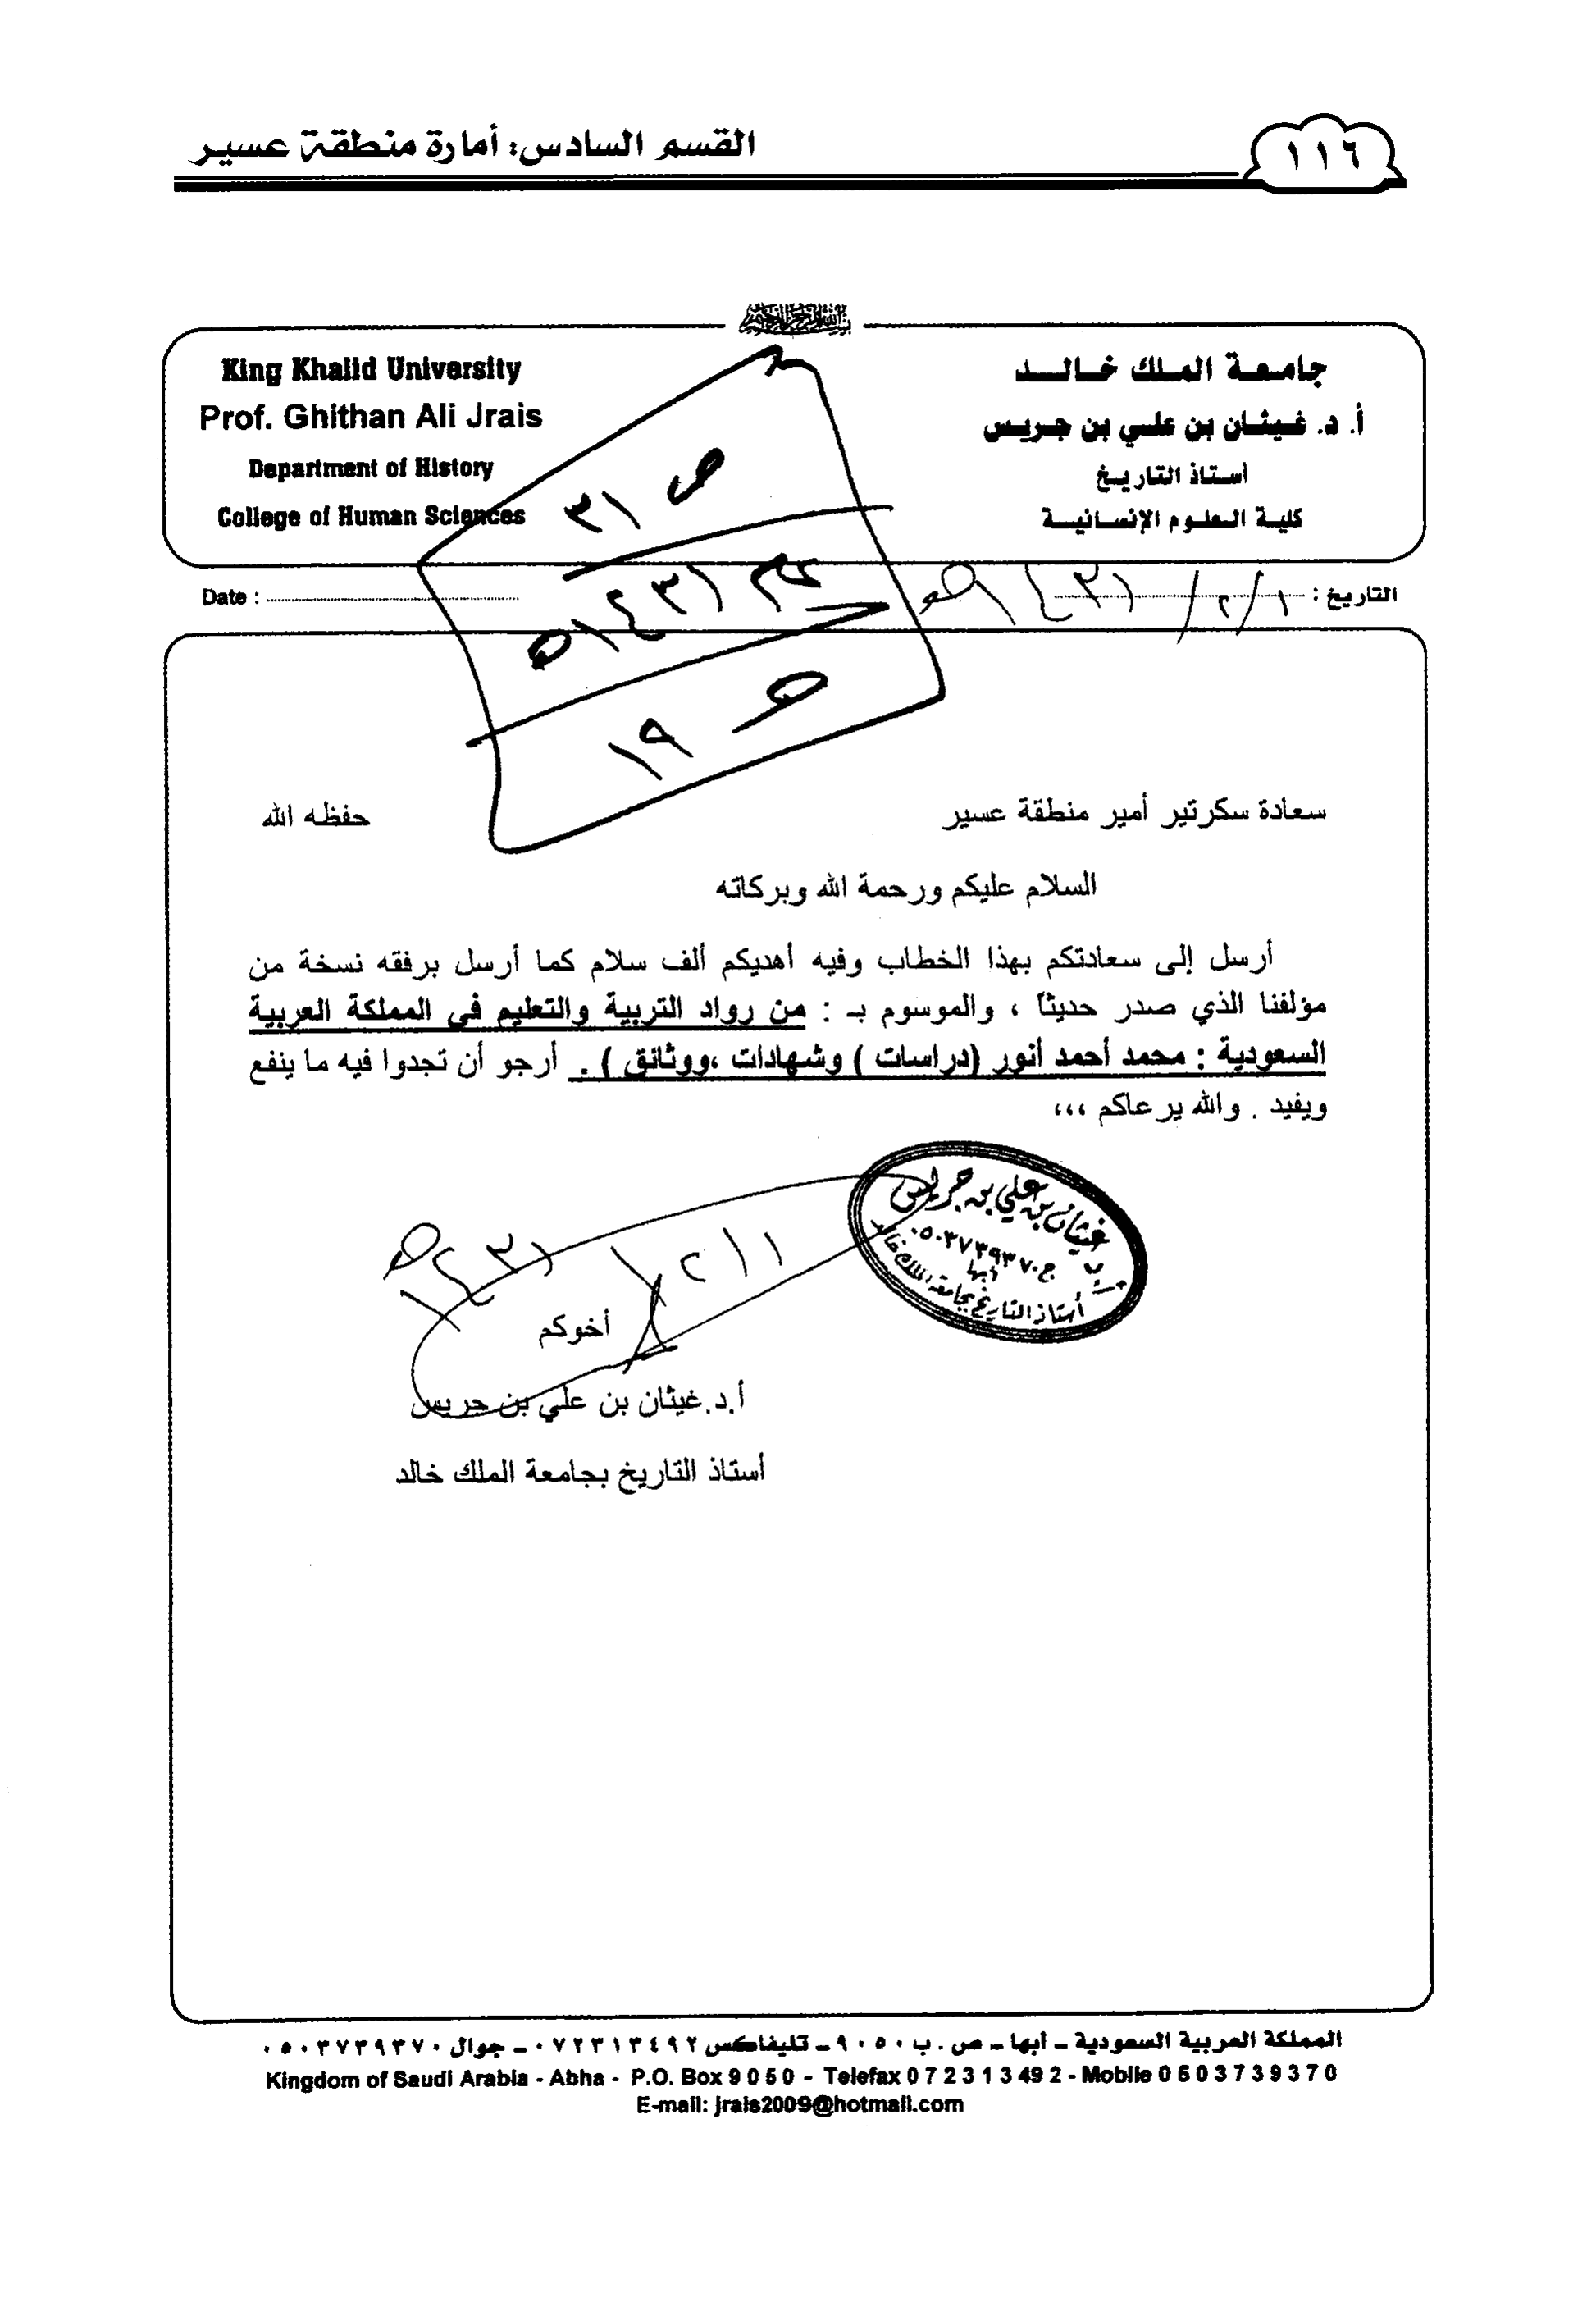 ١١٦
القسم السادس: أمارة منطقة عسير
بسم الله الرحمن الرحيم
جامعة الملك خالد
أ. د. غيثان بن علي بن جريس
أستاذ التاريخ
كلية العلوم الإنسانية
King Khalid University
Prof. Ghithan Ali Jrais
Department of History
College of Human Sciences
ص ٣١
١٤٣١هـ
١٩
التاريخ : ١/٢/١٤٣١هـ
Date :
سعادة سكرتير أمير منطقة عسير حفظه الله
السلام عليكم ورحمة الله وبركاته
أرسل إلى سعادتكم بهذا الخطاب وفيه أهديكم ألف سلام كما أرسل برفقه نسخة من
مؤلفنا الذي صدر حديثاً ، والموسوم بـ : من رواد التربية والتعليم في المملكة العربية
السعودية : محمد أحمد أنور (دراسات ) وشهادات ،ووثائق ) . أرجو أن تجدوا فيه ما ينفع
ويفيد . والله يرعاكم ،،،
غيثان بن علي بن جريس
ج ٠٥٠٣٧٣٩٣٧٠
أبها
أستاذ التاريخ بجامعة الملك خالد
١/٢/١٤٣١هـ
أخوكم
أ.د.غيثان بن علي بن جريس
أستاذ التاريخ بجامعة الملك خالد
المملكة العربية السعودية – أبها – ص . ب ٩٠٥٠ – تليفاكس ٠٧٢٣١٣٤٩٢ – جوال ٠٥٠٣٧٣٩٣٧٠
Kingdom of Saudi Arabia - Abha - P.O. Box 9 0 5 0 - Telefax 0 7 2 3 1 3 49 2 - Mobile 0 5 0 3 7 3 9 3 7 0
E-mail: jrais2009@hotmail.com